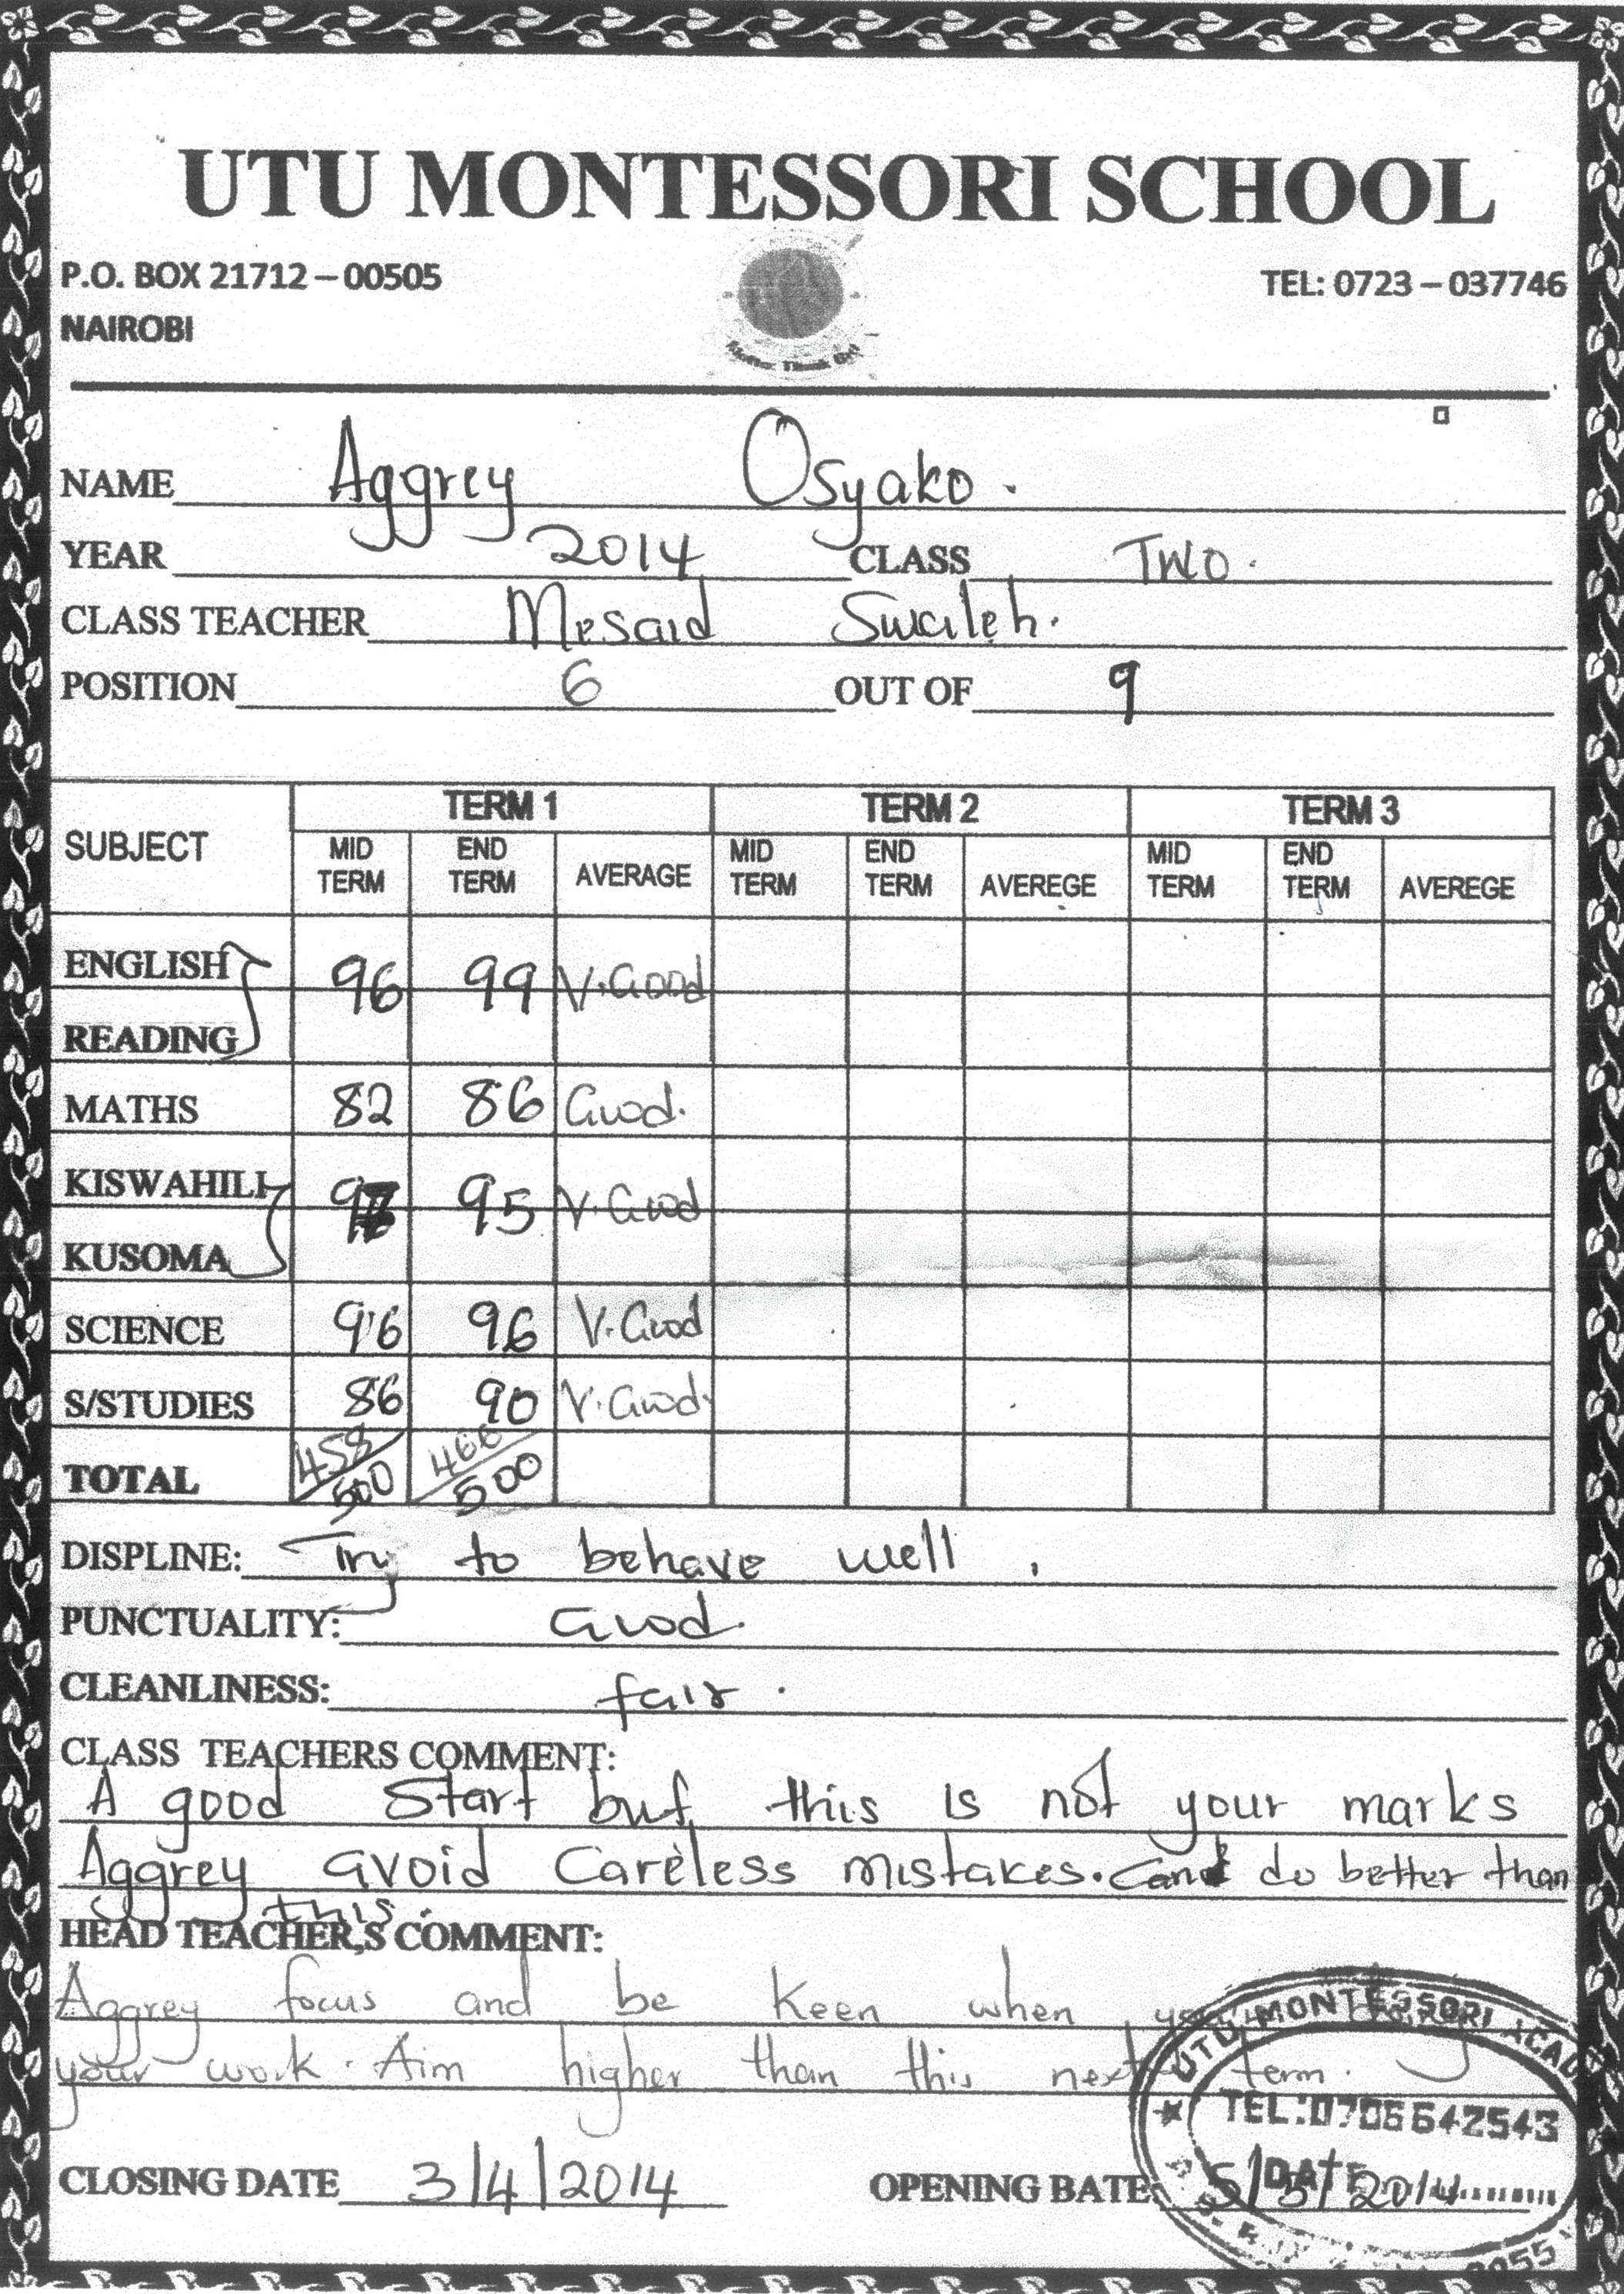 UTU MONTESSORI SCHOOL
P.O. BOX 21712 – 00505 TEL: 0723 – 037746
NAIROBI
NAME Aggrey Osyako.
YEAR 2014 CLASS Two.
CLASS TEACHER Mrsaid Swaleh.
POSITION 6 OUT OF 9
SUBJECT TERM 1 TERM 2 TERM 3
MID TERM END TERM AVERAGE MID TERM END TERM AVEREGE MID TERM END TERM AVEREGE
ENGLISH 96 99 V.Good
READING
MATHS 82 86 Good.
KISWAHILI 95 V.Good
KUSOMA
SCIENCE 96 96 V.Good
S/STUDIES 86 90 V.Good.
TOTAL 458/500 466/500
DISPLINE: Try to behave well.
PUNCTUALITY: Good.
CLEANLINESS: fair.
CLASS TEACHERS COMMENT:
A good Start but this is not your marks
Aggrey avoid Careless mistakes. and do better than
this.
HEAD TEACHER,S COMMENT:
Aggrey focus and be keen when
your work. Aim higher than this next term.
UTU MONTESSORI
TEL:0706642543
DATE
CLOSING DATE 3/4/2014 OPENING BATE: 5/5/2014